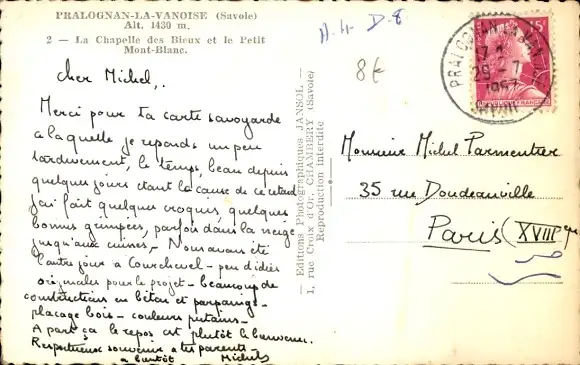 PRALOGNAN-LA-VANOISE (Savoie)
Alt. 1430 m.
2 — La Chapelle des Bieux et le Petit
Mont-Blanc.
A-4 D-8
8€
Cher Michel,.
Merci pour ta carte savoyarde
a laquelle je reponds un peu
tardivement, le temps, beau depuis
quelques jours etant la cause de ce retard
J'ai fait quelques croquis, quelques
bonnes grimpees, parfois dans la neige
jusqu'aux . Nous avons été
l'autre jour a Courchevel - peu d'idées
originales pour le projet - beaucoup de
constructions en béton et parpaings -
placage bois - couleurs
A part ça le repos est plutôt le bienvenu.
Respectueux souvenirs a tes parents
a bientôt Michel
— Editions Photographiques JANSOL —
1, rue Croix d'Or, CHAMBERY (Savoie)
Reproduction interdite
PRALOGNAN-LA-VANOISE
29 - 7
1957
SAVOIE
15F
POSTES FRANÇAISE
Monsieur Michel Parmentier
35 rue Doudeauville
Paris (XVIII